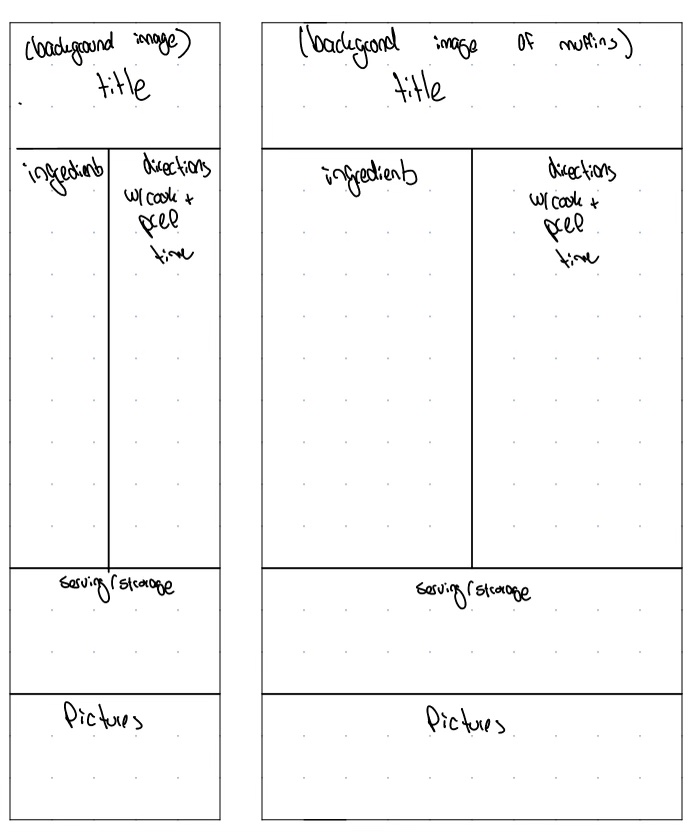 (background image)
title
ingredients
directions
w/ cook +
prep
time
serving/storage
Pictures
(background image of muffins)
title
ingredients
directions
w/ cook +
prep
time
serving/storage
Pictures